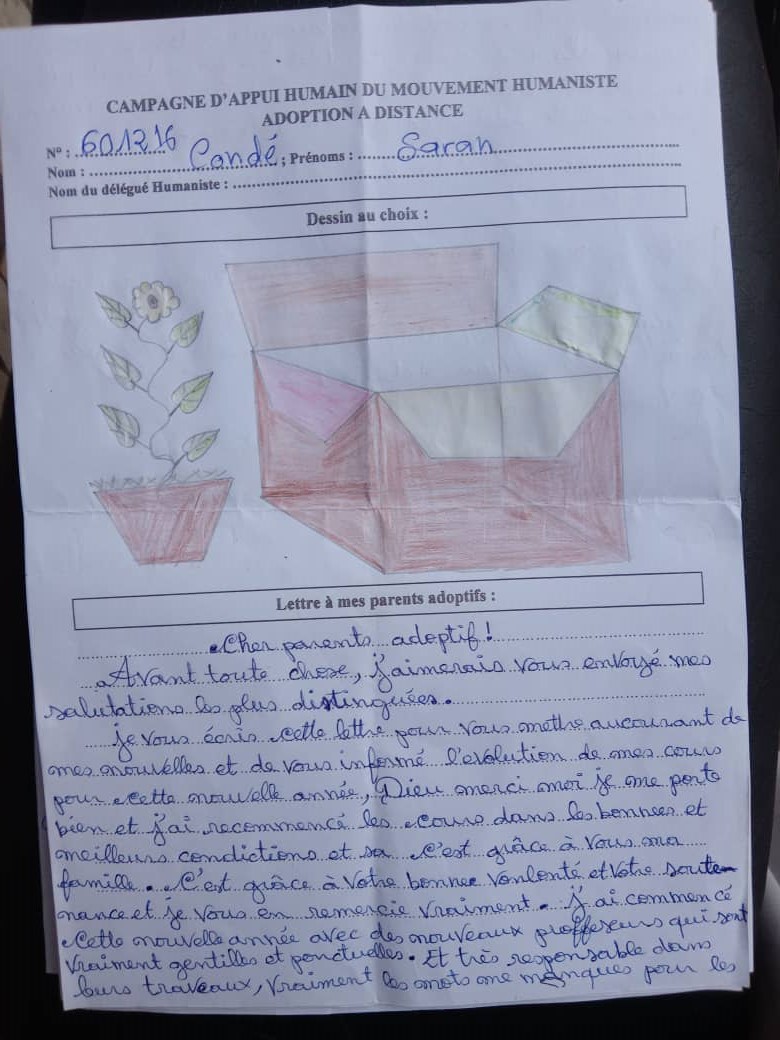 CAMPAGNE D'APPUI HUMAIN DU MOUVEMENT HUMANISTE
ADOPTION A DISTANCE
N° : 601216
Nom : Candé ; Prénoms : Saran
Nom du délégué Humaniste :
Dessin au choix :
Lettre à mes parents adoptifs :
Cher parents adoptif !
Avant toute chose, j'aimerais vous envoyé mes
salutations les plus distinguées.
je vous écris cette lettre pour vous mettre aucourant de
mes nouvelles et de vous informé l'evolution de mes cours
pour cette nouvelle année, Dieu merci moi je me porte
bien et j'ai recommencé les cours dans les bonnes et
meilleurs condictions et sa c'est grâce à vous ma
famille. C'est grâce à votre bonne volonté et votre soute-
nance et je vous en remercie vraiment. J'ai commencé
cette nouvelle année avec des nouveaux proffeseurs qui sont
vraiment gentilles et ponctuelles. Et très responsable dans
leurs travaux, vraiment les mots me manques pour les